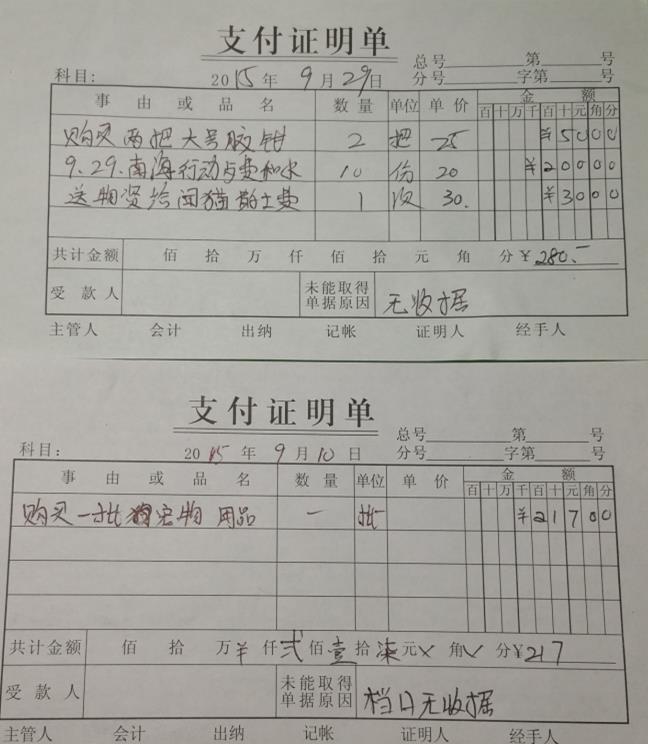 支付证明单
总号 第 号
科目: 2015年 9月29日 分号 字第 号
事由或品名 数量 单位 单价 金额
百十万千百十元角分
购买两把大号胶钳 2 把 25 ¥5000
9.29.南海行动与费和水 10 份 20 ¥20000
送物资给闻猫的士费 1 次 30. ¥3000
共计金额 佰 拾 万 仟 佰 拾 元 角 分¥280.-
受款人 未能取得单据原因 无收据
主管人 会计 出纳 记帐 证明人 经手人
支付证明单
总号 第 号
科目: 2015年 9月10日 分号 字第 号
事由或品名 数量 单位 单价 金额
百十万千百十元角分
购买一批宠物用品 一 批 ¥21700
共计金额 佰 拾 万¥仟贰佰壹拾柒元 角 分¥217
受款人 未能取得单据原因 档口无收据
主管人 会计 出纳 记帐 证明人 经手人